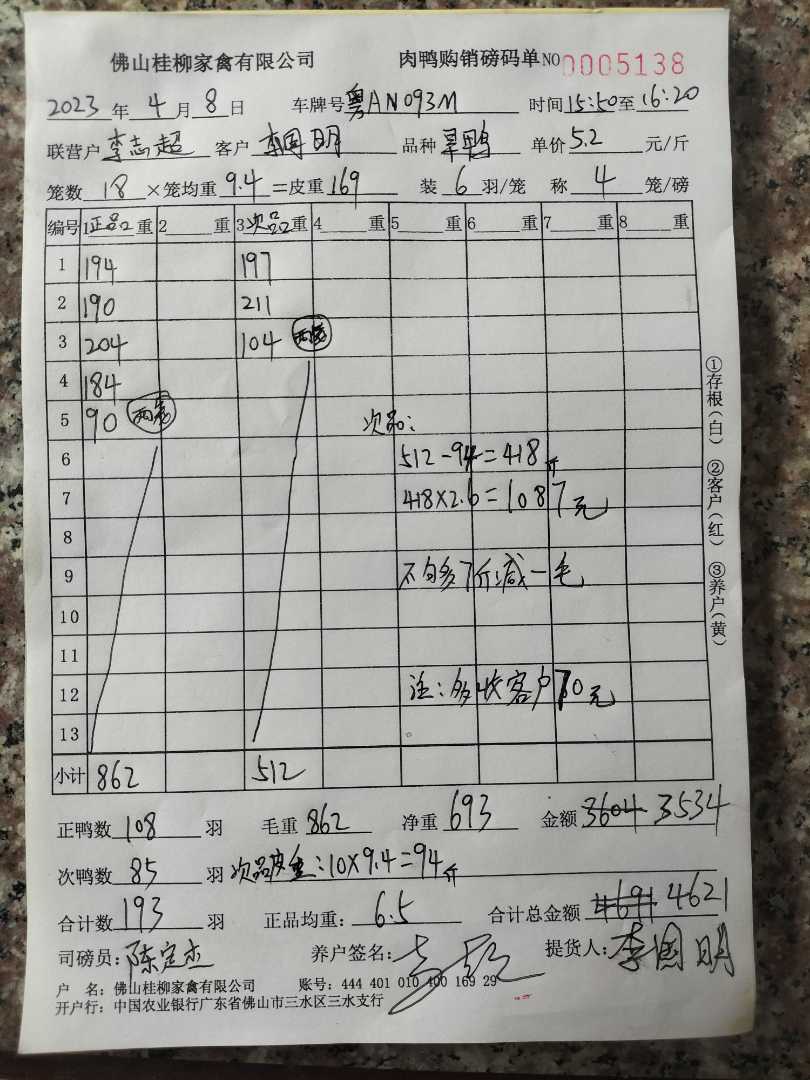 佛山桂柳家禽有限公司 肉鸭购销磅码单 NO 0005138
2023 年 4 月 8 日 车牌号 粤AN093M 时间 15:50 至 16:20
联营户 李志超 客户 李国明 品种 单价 5.2 元/斤
笼数 18 ×笼均重 9.4 =皮重 169 装 6 羽/笼 称 4 笼/磅
编号 1 正品 重 2 重 3 次品 重 4 重 5 重 6 重 7 重 8 重
1 194 197
2 190 211
3 204 104 两笼
4 184
5 90 两笼 次品:
6 512-94=418斤
7 418×2.6=1087元
8
9 不够多7斤减一毛
10
11
12 注:多收客户70元
13
小计 862 512
正鸭数 108 羽 毛重 862 净重 693 金额 3604 3534
次鸭数 85 羽 次品皮重:10×9.4=94斤
合计数 193 羽 正品均重: 6.5 合计总金额 4691 4621
司磅员: 陈定杰 养户签名: 提货人: 李国明
户 名: 佛山桂柳家禽有限公司 账号: 444 401 010 400 169 29
开户行: 中国农业银行广东省佛山市三水区三水支行
①存根(白) ②客户(红) ③养户(黄)